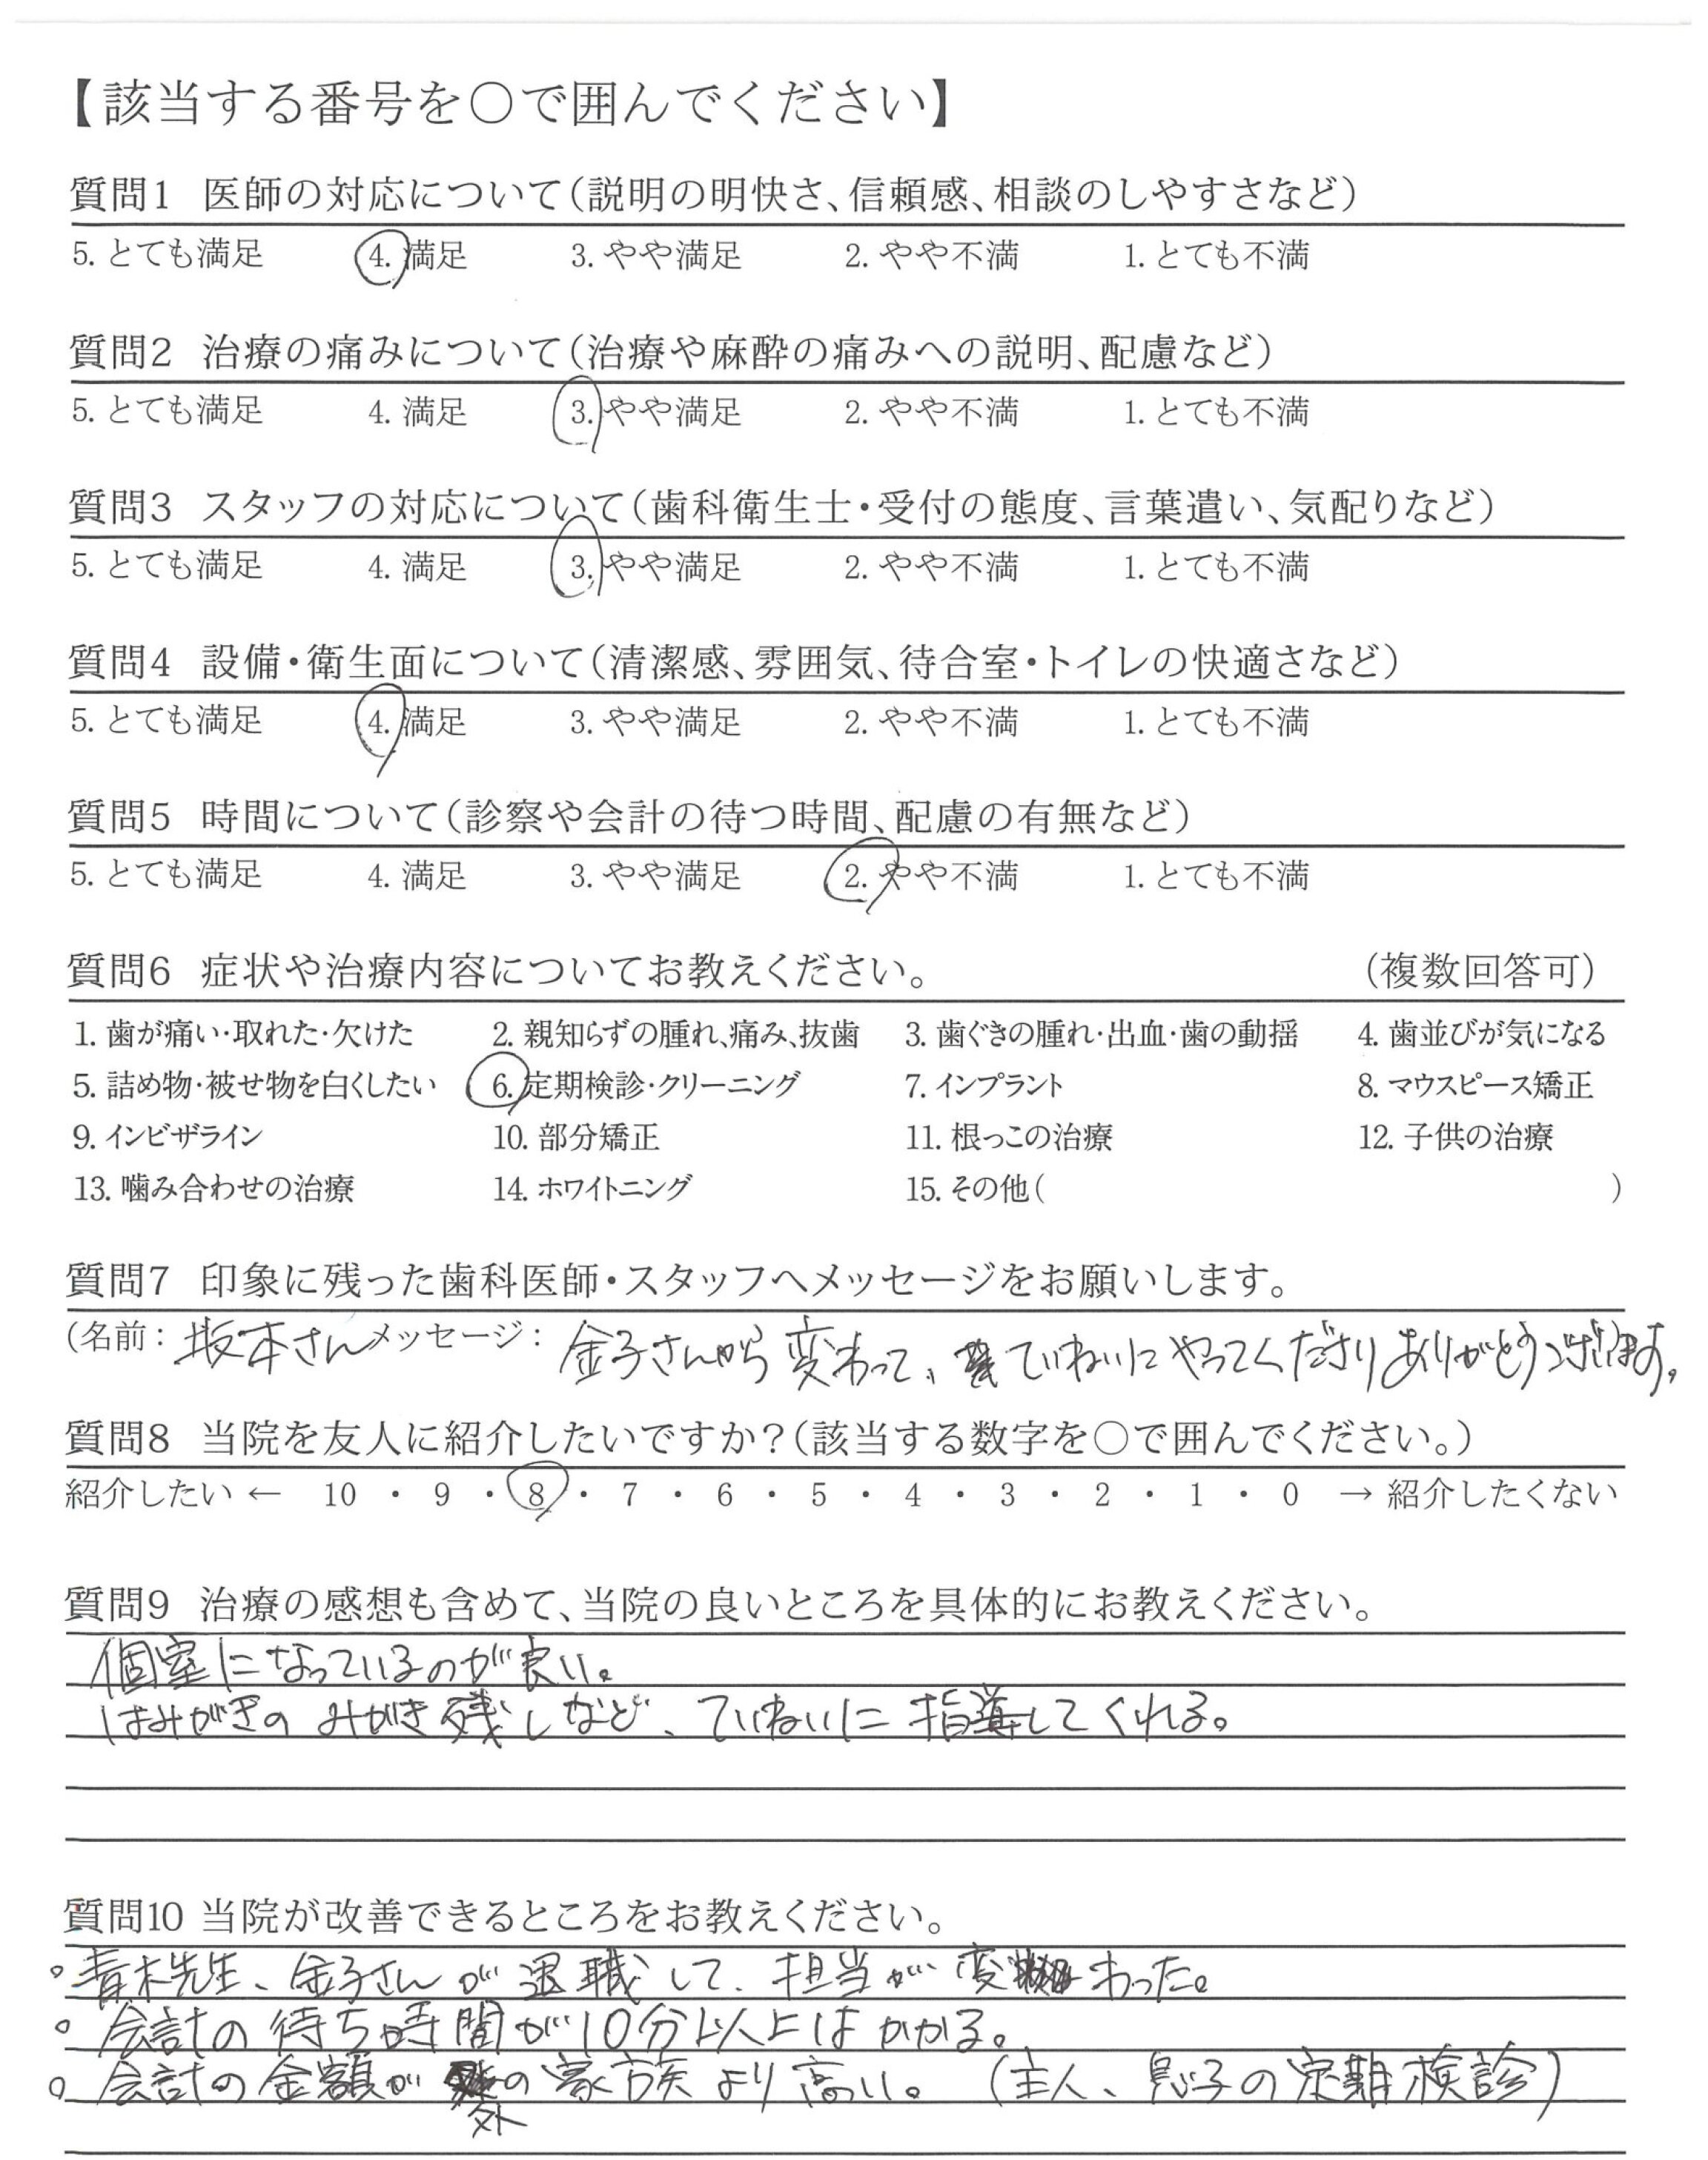 【該当する番号を○で囲んでください】
質問1 医師の対応について(説明の明快さ、信頼感、相談のしやすさなど)
5. とても満足 4. 満足 3. やや満足 2. やや不満 1. とても不満
質問2 治療の痛みについて(治療や麻酔の痛みへの説明、配慮など)
5. とても満足 4. 満足 3. やや満足 2. やや不満 1. とても不満
質問3 スタッフの対応について(歯科衛生士・受付の態度、言葉遣い、気配りなど)
5. とても満足 4. 満足 3. やや満足 2. やや不満 1. とても不満
質問4 設備・衛生面について(清潔感、雰囲気、待合室・トイレの快適さなど)
5. とても満足 4. 満足 3. やや満足 2. やや不満 1. とても不満
質問5 時間について(診察や会計の待つ時間、配慮の有無など)
5. とても満足 4. 満足 3. やや満足 2. やや不満 1. とても不満
質問6 症状や治療内容についてお教えください。 (複数回答可)
1. 歯が痛い・取れた・欠けた 2. 親知らずの腫れ、痛み、抜歯 3. 歯ぐきの腫れ・出血・歯の動揺 4. 歯並びが気になる
5. 詰め物・被せ物を白くしたい 6. 定期検診・クリーニング 7. インプラント 8. マウスピース矯正
9. インビザライン 10. 部分矯正 11. 根っこの治療 12. 子供の治療
13. 噛み合わせの治療 14. ホワイトニング 15. その他( )
質問7 印象に残った歯科医師・スタッフへメッセージをお願いします。
(名前: 坂本さん メッセージ: 金子さんから変わって、ていねいにやってくださりありがとうございます。
質問8 当院を友人に紹介したいですか?(該当する数字を○で囲んでください。)
紹介したい ← 10 ・ 9 ・ 8 ・ 7 ・ 6 ・ 5 ・ 4 ・ 3 ・ 2 ・ 1 ・ 0 → 紹介したくない
質問9 治療の感想も含めて、当院の良いところを具体的にお教えください。
個室になっているのが良い。
はみがきのみがき残しなど、ていねいに指導してくれる。
質問10 当院が改善できるところをお教えください。
。青木先生、金子さんが退職して、担当が変わった。
。会計の待ち時間が10分以上はかかる。
。会計の金額が外の家族より高い。(主人、息子の定期検診)